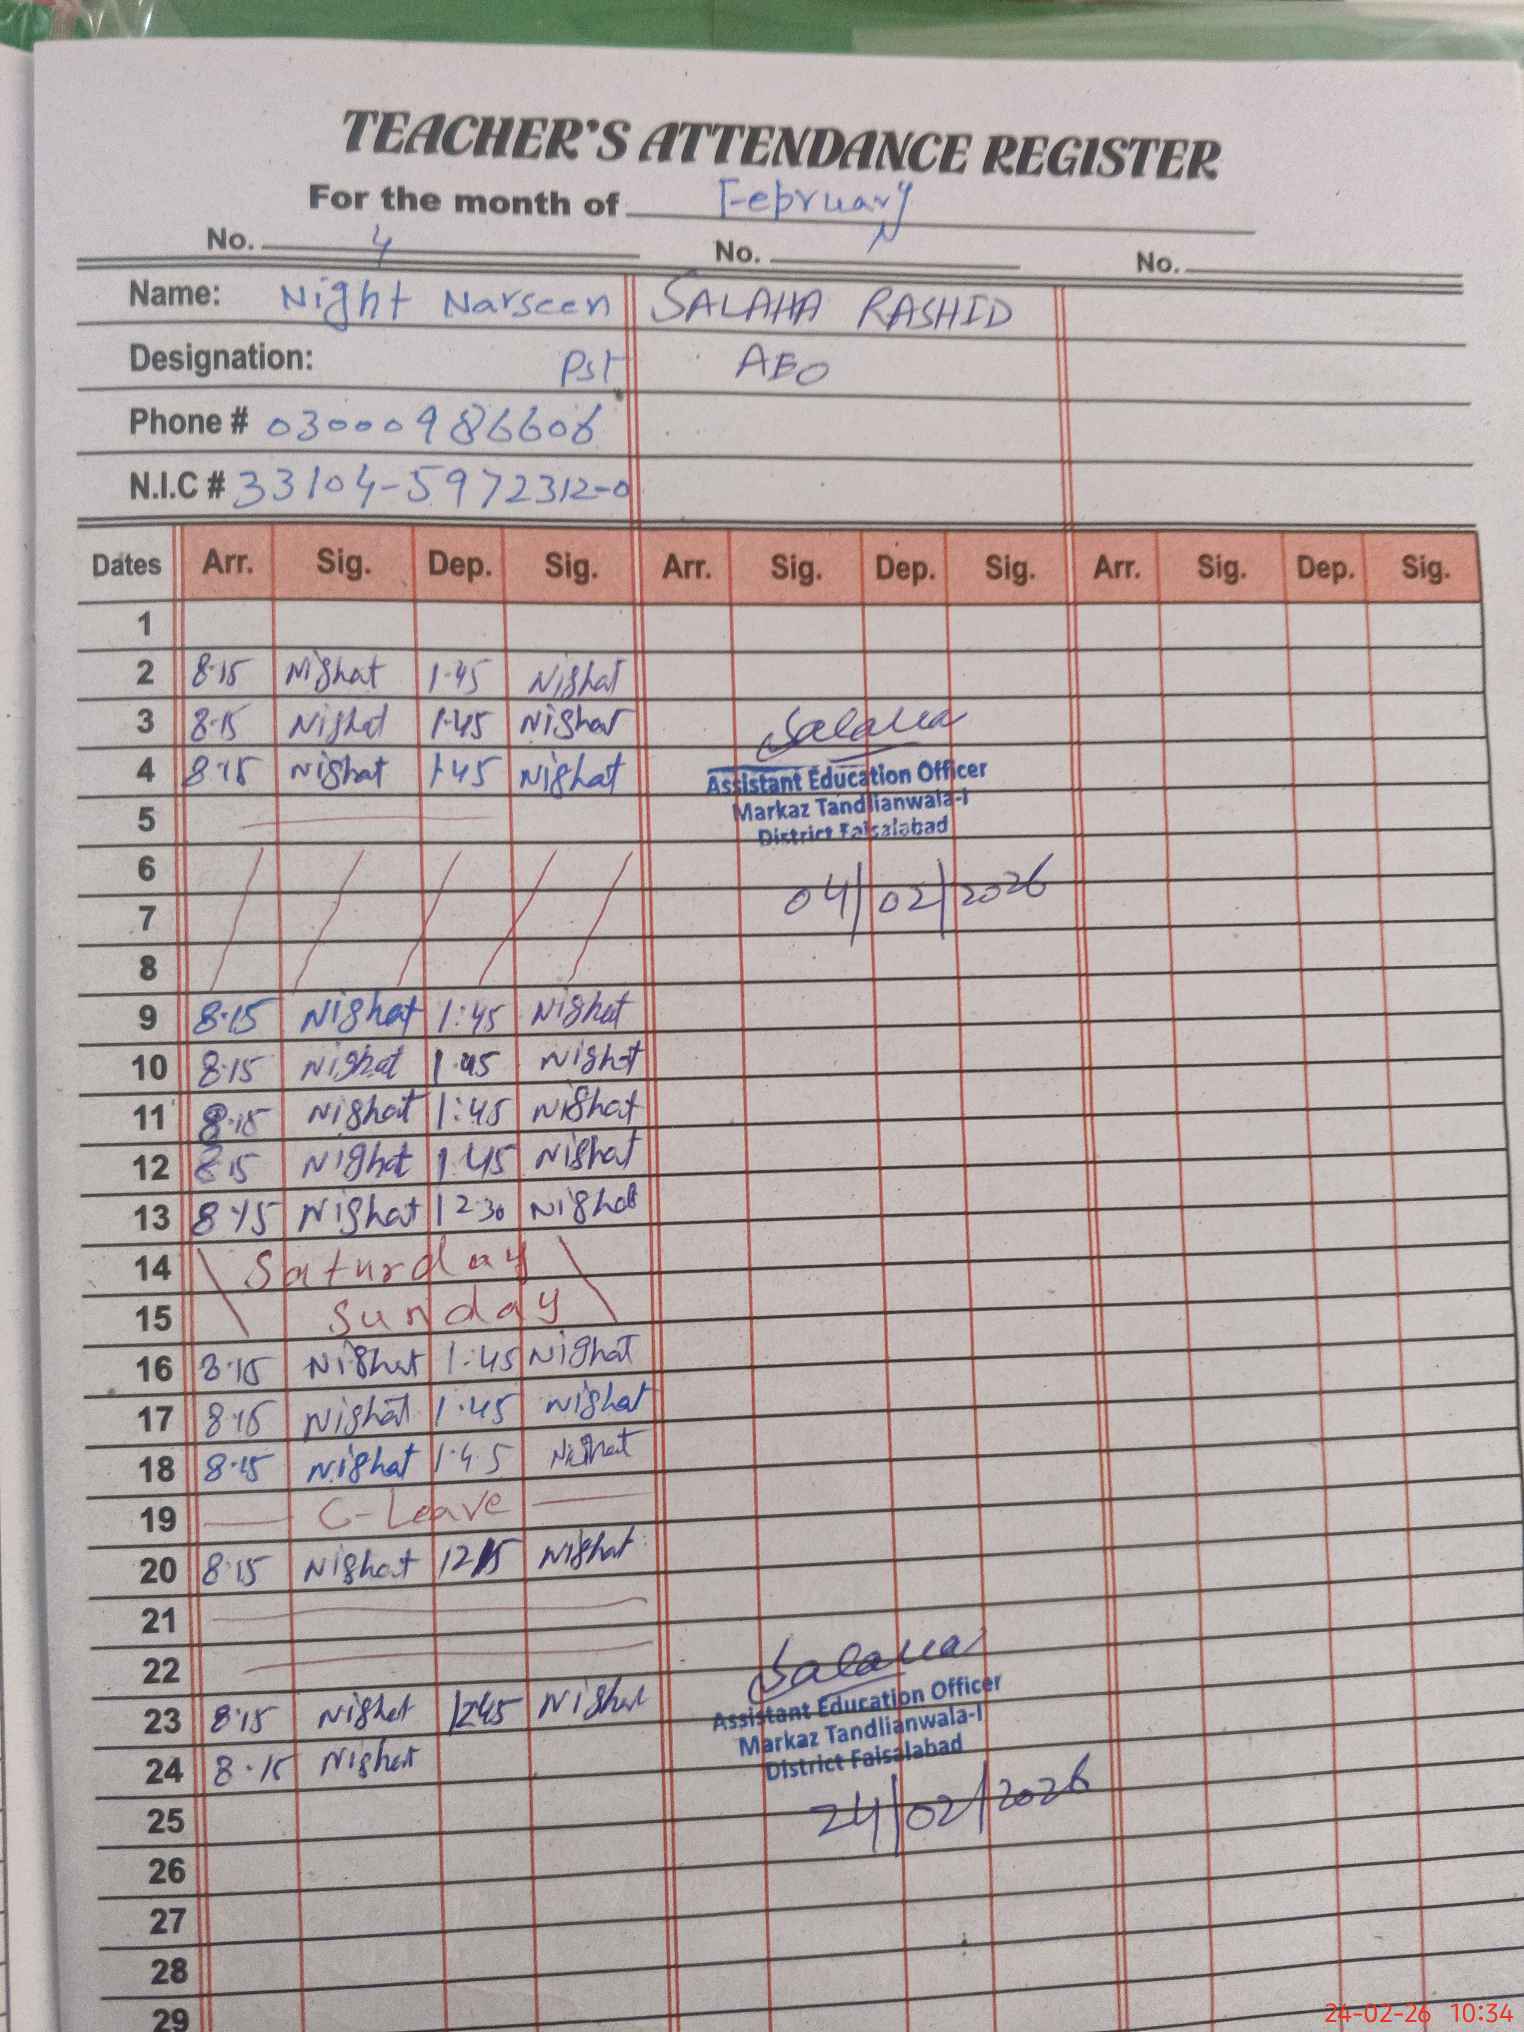 TEACHER'S ATTENDANCE REGISTER
For the month of February
No. 4 No. No.
Name: Night Narseen SALAHA RASHID
Designation: Pst AEO
Phone # 03000986606
N.I.C # 33104-5972312-0
Dates Arr. Sig. Dep. Sig. Arr. Sig. Dep. Sig. Arr. Sig. Dep. Sig.
1
2 8-15 Nighat 1-45 Nighat
3 8-15 Nighat 1-45 Nighat Salaha
4 8-15 Nighat 1-45 Nighat Assistant Education Officer
Markaz Tandlianwala-I
5 District Faisalabad
6 04/02/2026
7
8
9 8-15 Nighat 1:45 Nighat
10 8-15 Nighat 1-45 Nighat
11 8-15 Nighat 1:45 Nighat
12 8-15 Nighat 1-45 Nighat
13 8-15 Nighat 12-30 Nighat
14 Saturday
15 Sunday
16 8-15 Nighat 1:45 Nighat
17 8-15 Nighat 1-45 Nighat
18 8-15 Nighat 1-45 Nighat
19 C-Leave
20 8-15 Nighat 1215 Nighat
21
22 Salaha
23 8-15 Nighat 1245 Nighat Assistant Education Officer
Markaz Tandlianwala-I
24 8-15 Nighat District Faisalabad
25 24/02/2026
26
27
28
29
24-02-26 10:34